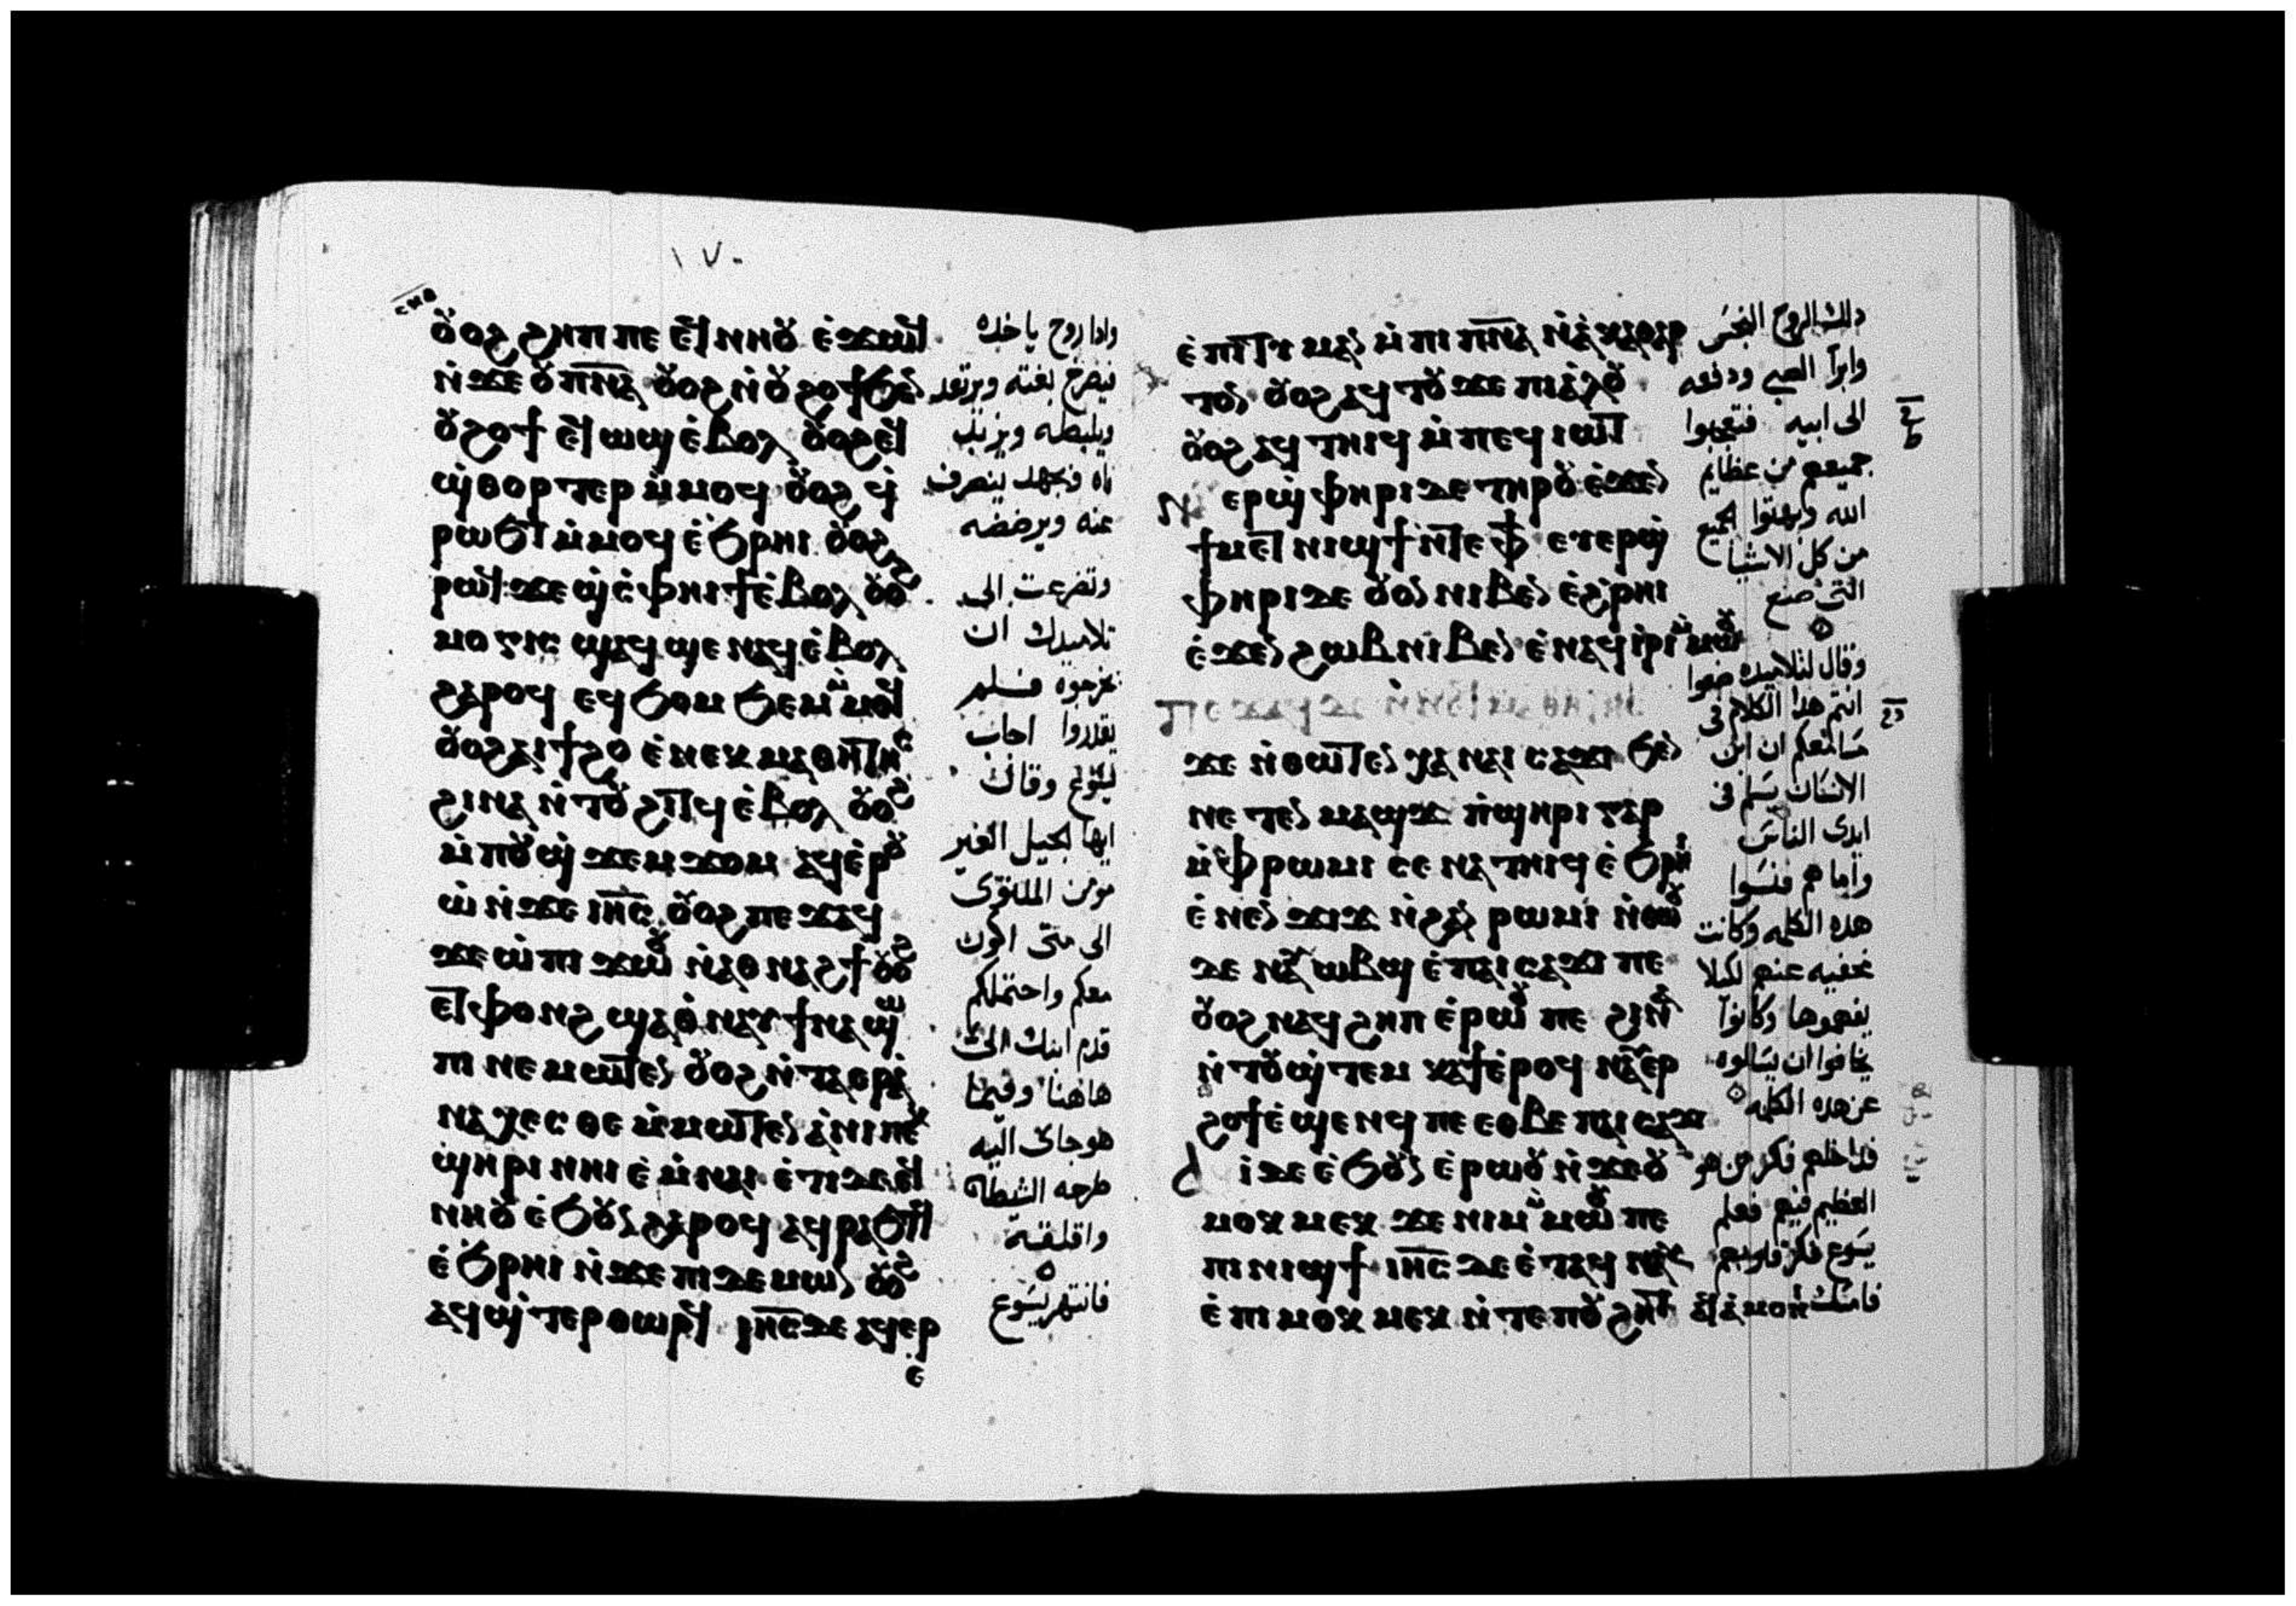 ⲥⲙⲑ
١٧٠
ⲟⲩⲟϩ ϩⲏⲡⲡⲉ ⲉϥⲛⲏⲟⲩ ⲉ̀ϫⲱϥ
ⲛ̀ϫⲉ ⲟⲩⲡ̅ⲛ̅ⲁ̅ ⲟⲩⲟϩ ⲛ̀ⲟⲩϩⲟϯ ϧⲉⲛ
ⲟⲩϩⲟϯ ⲉϥⲱϣ ⲉ̀ⲃⲟⲗ ⲟⲩⲟϩ ⲉϥ
ϣ̀ⲑⲟⲣⲧⲉⲣ ⲙ̀ⲙⲟϥ ⲟⲩⲟϩ ϥ̀
ⲣⲱϧⲧ ⲙ̀ⲙⲟϥ ⲉ̀ϧⲣⲏⲓ ⲟⲩⲟϩ
ⲙⲟⲅⲓⲥ ϣⲁϥϣⲉ ⲛⲁϥ ⲉ̀ⲃⲟⲗ
ϩⲁⲣⲟϥ ⲉϥϧⲟⲙϧⲉⲙ ⲙ̀ⲙⲟϥ
ⲟⲩⲟϩ ⲁⲓϯϩⲟ ⲉ̀ⲛⲉⲕⲙⲁⲑⲏⲧⲏⲥ
ϩⲓⲛⲁ ⲛ̀ⲧⲟⲩϩⲓⲧϥ ⲉ̀ⲃⲟⲗ ⲟⲩⲟϩ
ⲙ̀ⲡⲟⲩϣ̀ϫⲉⲙϫⲟⲙ ⲁϥⲉ̀ⲣⲟⲩ
ⲱ̀ ⲛ̀ϫⲉ ⲓ̅ⲏ̅ⲥ̅ ⲟⲩⲟϩ ⲡⲉϫⲁϥ
ϫⲉ ⲱ̀ ⲡⲓϫⲱⲟⲩ ⲛ̀ⲁⲑⲛⲁϩϯ ⲟⲩⲟϩ
ⲉⲧⲫⲟⲛϩ ϣⲁⲑ̀ⲛⲁⲩ ϯⲛⲁϣⲱ
ⲡⲓ ⲛⲉⲙⲱⲧⲉⲛ ⲟⲩⲟϩ ⲛ̀ⲧⲁⲉⲣⲁ̀
ⲛⲁⲭⲉⲥⲑⲉ ⲙ̀ⲙⲱⲧⲉⲛ ⲁ̀ⲛⲓ ⲡⲉⲕ
ϣ̀ⲏⲣⲓ ⲛⲏⲓ ⲉ̀ⲙ̀ⲛⲁⲓ ⲉ̀ⲧⲓ ⲇⲉ ⲉϥ
ⲛⲏⲟⲩ ⲉ̀ϧⲟⲩⲛ ϩⲁⲣⲟϥ ⲁϥⲣⲁϧⲧϥ
ⲉ̀ϧⲣⲏⲓ ⲛ̀ϫⲉ ⲡⲓⲇⲉⲙⲱⲛ ⲟⲩⲟϩ
ⲁϥϣ̀ⲧⲉⲣⲑⲱⲣϥ ⲓ̅ⲏ̅ⲥ̅ ⲇⲉ ⲁϥⲉⲣ
ⲉ
وادا روح ياخده
فيصرخ بغته ويرتعد
ويلبطه ويزبد
فبجهد ينصرف
عنه ويرضضه
وتضرعت الى
تلاميدك ان
يخرجوه فلم
يقدروا اجاب
يسوع وقال
ايها الجيل الغير
مومن الملتوى
الى متى اكون
معكم واحتملكم
قدم ابنك الى
هاهنا وفيما
هو جاى اليه
طرحه الشيطان
واقلقه
فانتهر يسوع
ⲉ̀ⲡⲓⲧⲓⲙⲁⲛ ⲙ̀ⲡⲓⲡ̅ⲛ̅ⲁ̅ ⲛ̀ⲁ̀ⲕⲁⲑⲁⲣ
ⲧⲟⲛ ⲟⲩⲟϩ ⲁϥⲧⲟⲩϫⲉ ⲡⲓⲁ̀ⲗⲟⲩ
ⲟⲩⲟϩ ⲁϥⲧⲏⲓϥ ⲙ̀ⲡⲉϥⲓⲱⲧ
ⲛⲁⲩ ⲉⲣϣ̀ⲫⲏⲣⲓ ⲇⲉ ⲧⲏⲣⲟⲩ ⲉ̀ϫⲉⲛ
ϯⲙⲉⲧⲛⲓϣϯ ⲛ̀ⲧⲉ ⲫϯ ⲉⲩⲉⲣϣ̀
ⲫⲏⲣⲓ ⲇⲉ ⲟⲩⲟⲛ ⲛⲓⲃⲉⲛ ⲉ̀ϩ̀ⲣⲏⲓ
ⲉ̀ϫⲉⲛ ϩⲱⲃ ⲛⲓⲃⲉⲛ ⲉ̀ⲛⲁϥⲓ̀ⲣⲓ ⲙ̀ⲙⲱⲟⲩ
ϫⲉ ⲛ̀ⲑⲱⲧⲉⲛ ⲭⲁ ⲛⲁⲓⲥⲁϫⲓ ϧⲉⲛ
ⲛⲉⲧⲉⲛⲙⲁϣϫ ⲡ̀ϣⲏⲣⲓ ⲅⲁⲣ
ⲙ̀ⲫⲣⲱⲙⲓ ⲥⲉⲛⲁⲧⲏⲓϥ ⲉ̀ϧⲣⲏⲓ
ⲉ̀ⲛⲉⲛϫⲓϫ ⲛ̀ϩⲁⲛⲣⲱⲙⲓ ⲛ̀ⲑⲱⲟⲩ
ⲇⲉ ⲛⲁⲩⲱⲃϣ ⲉ̀ⲡⲁⲓⲥⲁϫⲓ ⲡⲉ
ⲟⲩⲟϩ ⲛⲁϥϩⲏⲡ ⲉ̀ⲣⲱⲟⲩ ⲡⲉ ϩⲓⲛⲁ
ⲛ̀ⲧⲟⲩϣ̀ⲧⲉⲙⲕⲁϯ ⲉ̀ⲣⲟϥ ⲛⲁⲩⲉⲣ
ϩⲟϯ ⲉ̀ϣⲉⲛϥ ⲡⲉ ⲉⲑⲃⲉ ⲡⲁⲓⲥⲁϫⲓ
ⲁϥⲓ̀ ⲇⲉ ⲉ̀ϧⲟⲩⲛ ⲉ̀ⲣⲱⲟⲩ ⲛ̀ϫⲉ ⲟⲩ
ⲙⲟⲕⲙⲉⲕ ϫⲉ ⲛⲓⲙ ⲙ̀ⲙⲱⲟⲩ ⲡⲉ
ⲡⲓⲛⲓϣϯ ⲓ̅ⲏ̅ⲥ̅ ⲇⲉ ⲉ̀ⲧⲁϥⲛⲁⲩ
ⲉ̀ⲡⲓⲙⲟⲕⲙⲉⲕ ⲛ̀ⲧⲉ ⲡⲟⲩϩⲏⲧ ⲁϥⲁ̀ⲙⲟⲛⲓ
دلك الروح النجس
وابرا الصبى ودفعه
الى ابيه فتعجبوا
جميعهم من عظايم
الله وبهتوا الجميع
من كل الاشيا
التى صنع
وقال لتلاميده ضعوا
انتم هدا الكلام فى
مسامعكم ان ابن
الانسان يسلم فى
ايدى الناس
واما هم فنسوا
هده الكلمه وكانت
مخفيه عنهم لكيلا
يفهموها وكانوا
يخافوا ان يسالوه
عن هده الكلمه
فداخلهم فكر من هو
العظيم فيهم فعلم
يسوع فكر قلوبهم
فامسك